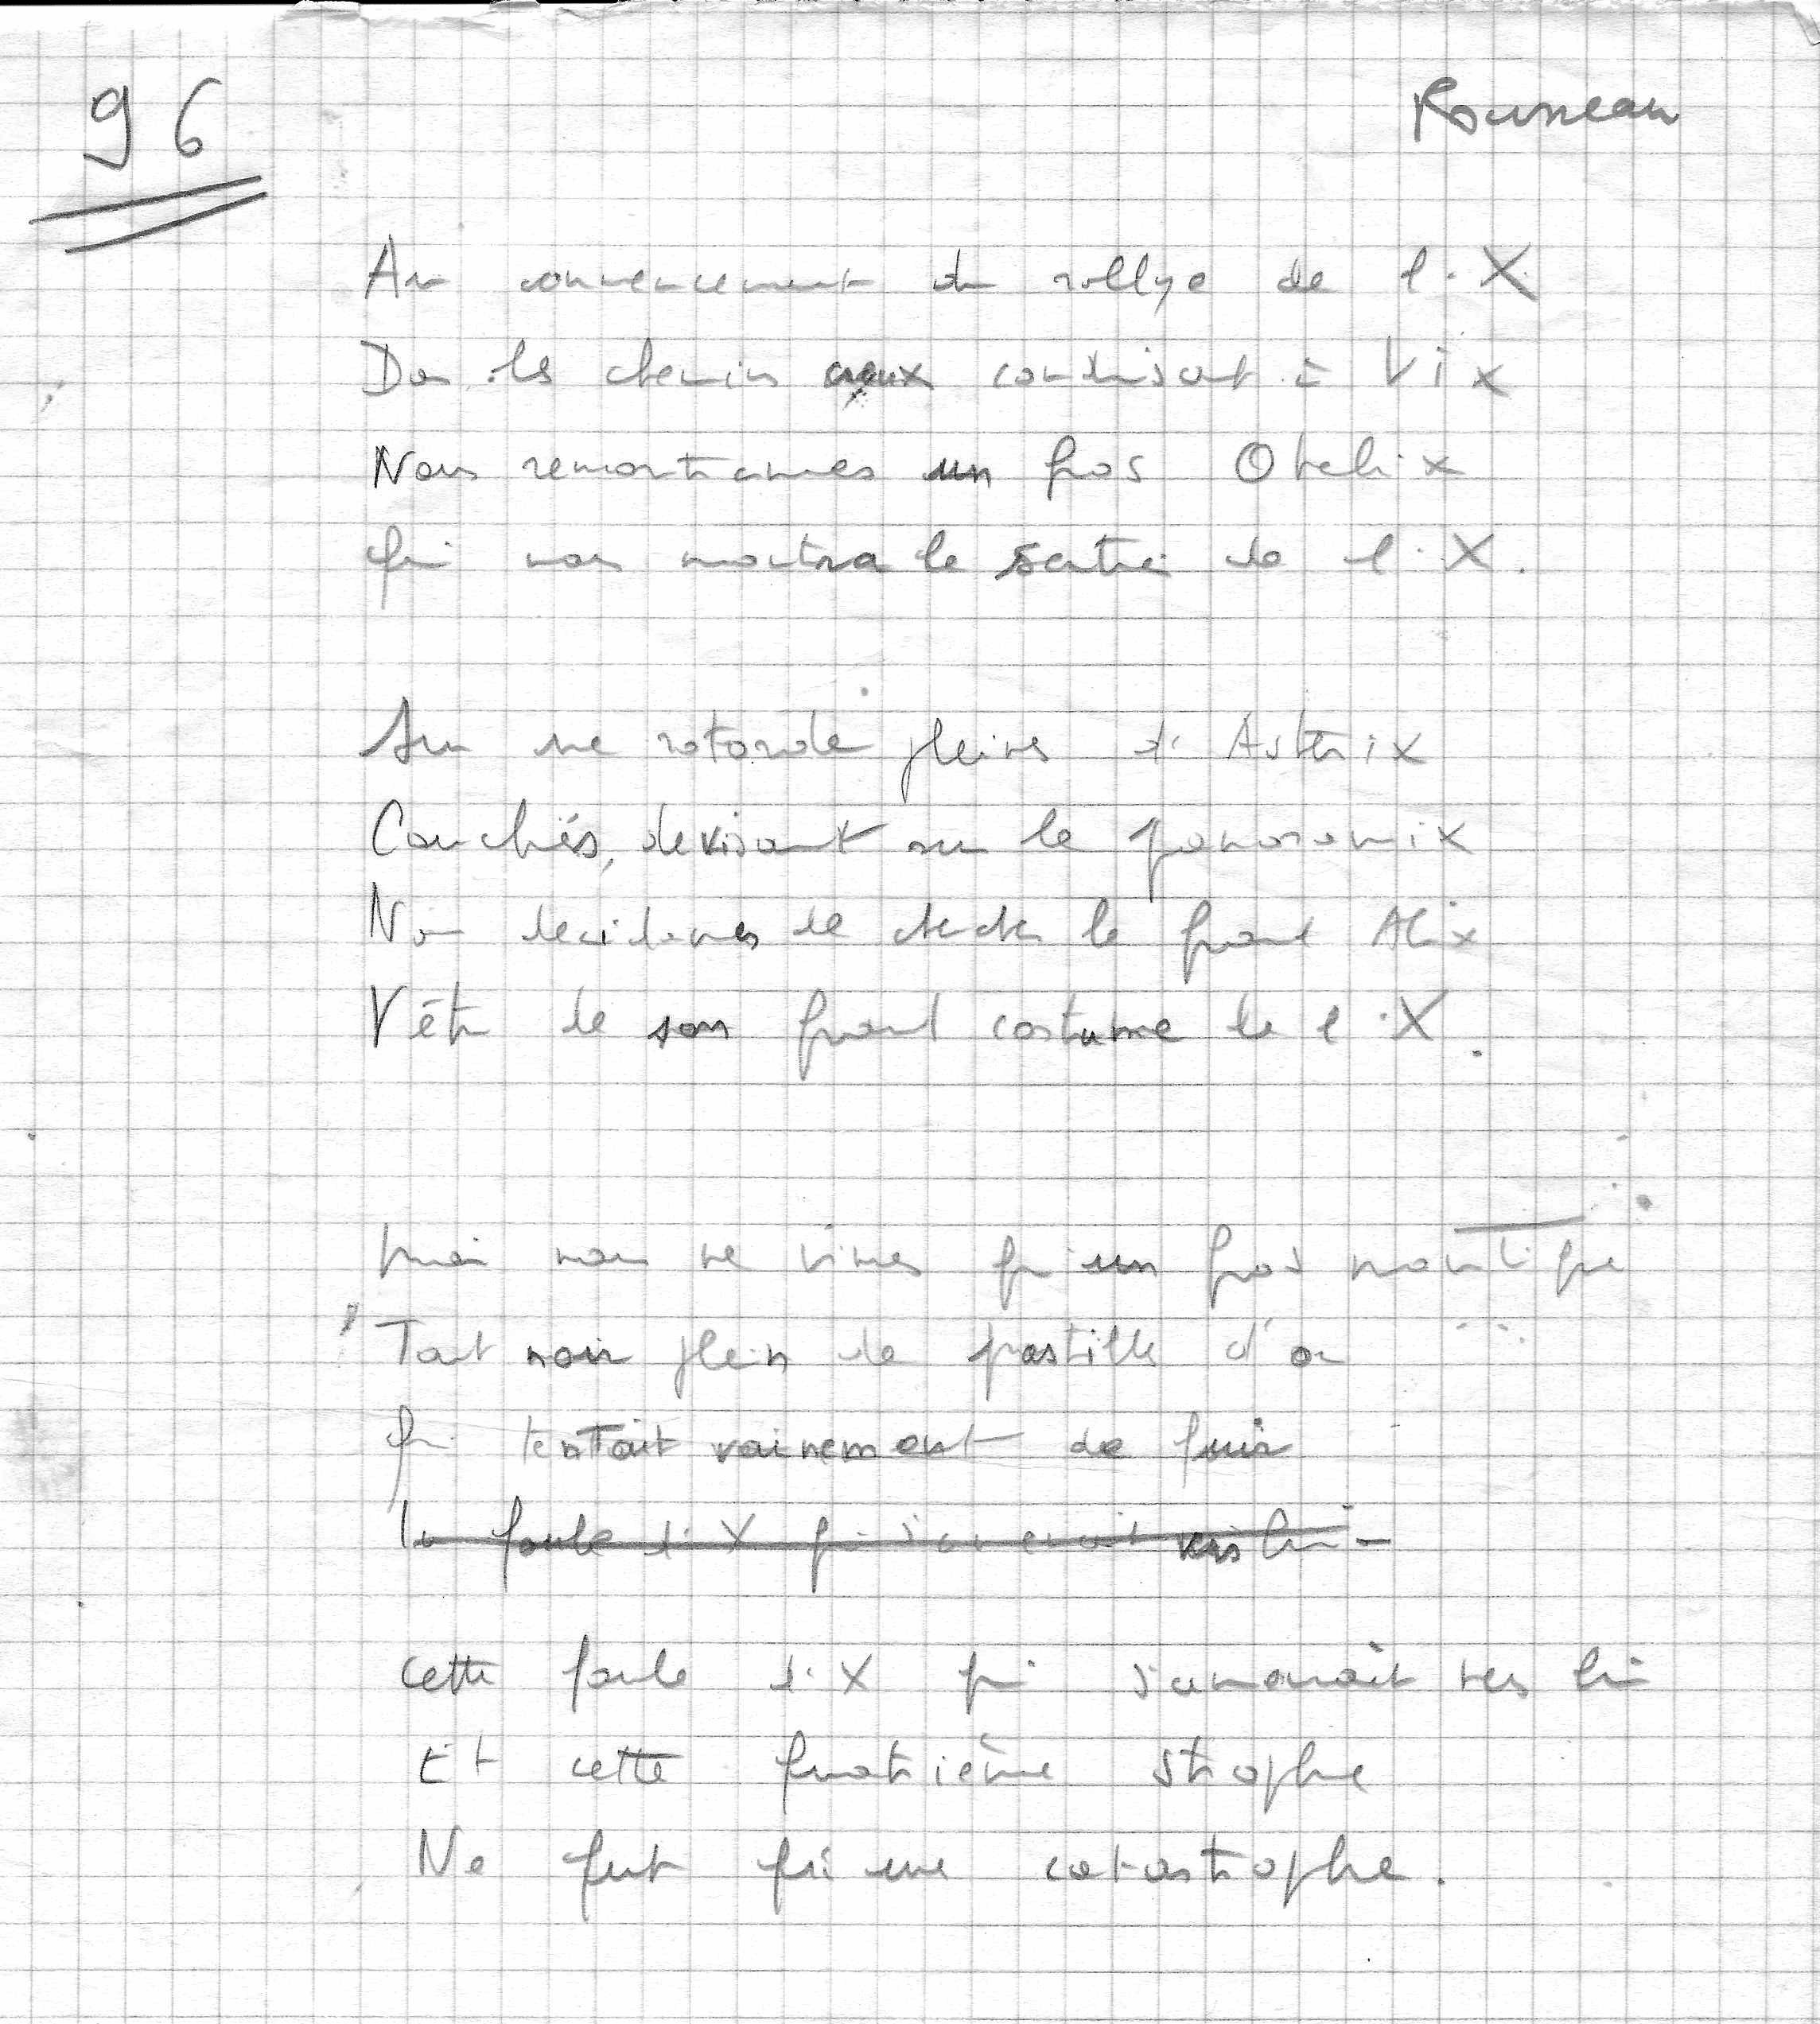 96
Rousseau
Au commencement du rallye de l'X
Dans les chemins creux conduisant à Vix
Nous remontames un gros Obelix
Qui nous montra le sentier de l'X.
Sur une rotonde pleine d'Astérix
Couchés, devisant sur le panoramix
Nous decidames de chercher le grand Alix
Vêtu de son grand costume de l'X.
Mais nous ne vimes qu'un gros moustique
Tout noir plein de pastilles d'or
Qui tentait vainement de fuir
la foule d'X qui s'amenait vers lui
Cette foule d'X qui s'amenait vers lui
Et cette quatrième strophe
Ne fut qu'une catastrophe.